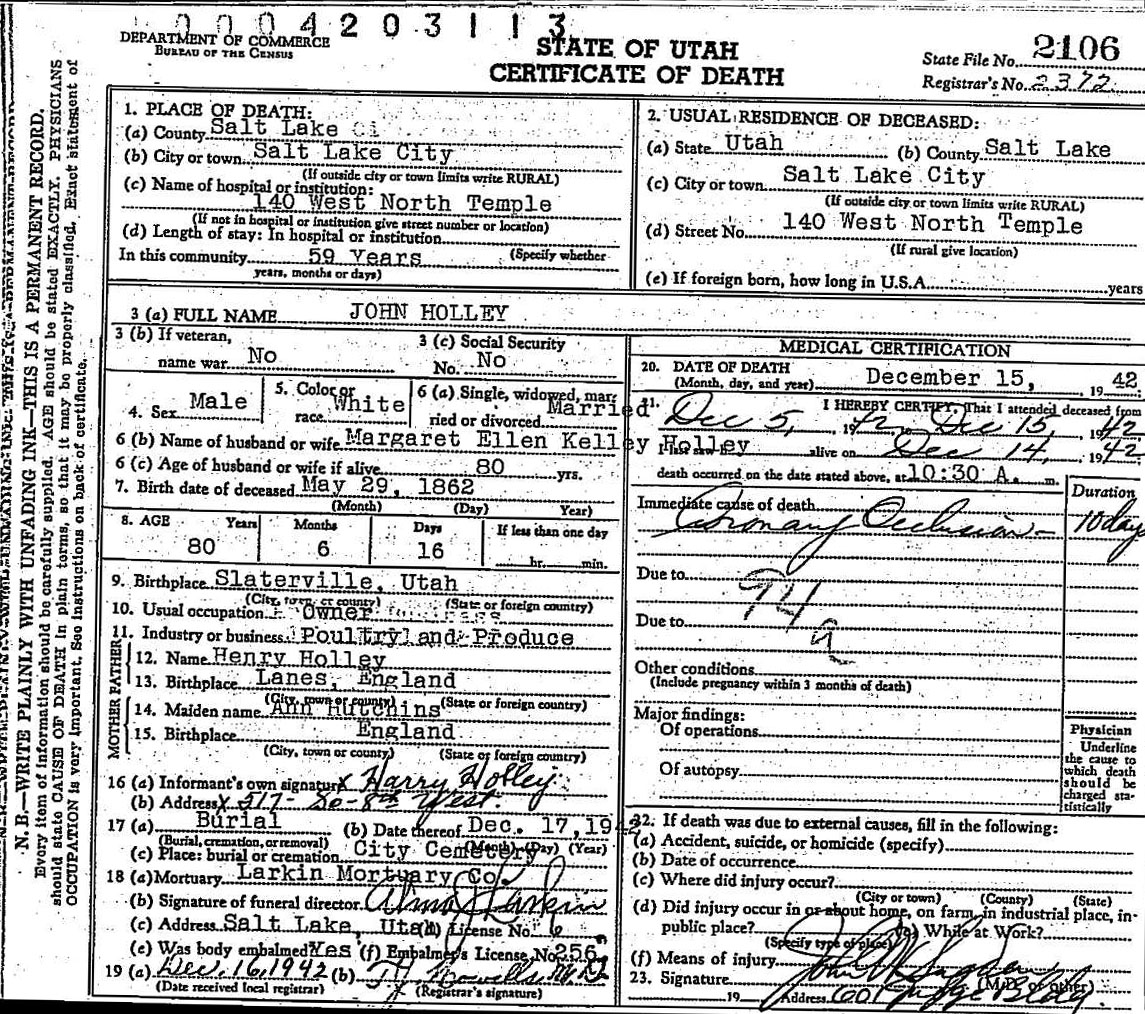 0004203113
DEPARTMENT OF COMMERCE
BUREAU OF THE CENSUS
STATE OF UTAH
CERTIFICATE OF DEATH
State File No. 2106
Registrar's No. 2372
N. B.—WRITE PLAINLY WITH UNFADING INK—THIS IS A PERMANENT RECORD.
Every item of information should be carefully supplied. AGE should be stated EXACTLY. PHYSICIANS
should state CAUSE OF DEATH in plain terms, so that it may be properly classified. Exact statement of
OCCUPATION is very important. See instructions on back of certificate.
1. PLACE OF DEATH:
(a) County Salt Lake Ci
(b) City or town Salt Lake City
(If outside city or town limits write RURAL)
(c) Name of hospital or institution:
140 West North Temple
(If not in hospital or institution give street number or location)
(d) Length of stay: In hospital or institution
In this community 59 Years (Specify whether
years, months or days)
2. USUAL RESIDENCE OF DECEASED:
(a) State Utah (b) County Salt Lake
(c) City or town Salt Lake City
(If outside city or town limits write RURAL)
(d) Street No. 140 West North Temple
(If rural give location)
(e) If foreign born, how long in U.S.A. years
3 (a) FULL NAME JOHN HOLLEY
3 (b) If veteran,
name war No
3 (c) Social Security
No. No
4. Sex Male
5. Color or
race White
6 (a) Single, widowed, mar-
ried or divorced Married
6 (b) Name of husband or wife Margaret Ellen Kelley Holley
6 (c) Age of husband or wife if alive 80 yrs.
7. Birth date of deceased May 29, 1862
(Month) (Day) Year)
8. AGE Years Months Days If less than one day
80 6 16 hr. min.
9. Birthplace Slaterville, Utah
(City, town, or county) (State or foreign country)
10. Usual occupation Owner
11. Industry or business Poultry and Produce
FATHER
12. Name Henry Holley
13. Birthplace Lanes, England
(City, town or county) (State or foreign country)
MOTHER
14. Maiden name Ann Hutchins
15. Birthplace England
(City, town or county) (State or foreign country)
16 (a) Informant's own signature x Harry Holley
(b) Address x 517- So-8th West.
17 (a) Burial (b) Date thereof Dec. 17, 1942
(Burial, cremation, or removal) (Month) (Day) (Year)
(c) Place: burial or cremation City Cemetery
18 (a) Mortuary Larkin Mortuary Co.
(b) Signature of funeral director Alma J Larkin
(c) Address Salt Lake, Utah (d) License No. 6
(e) Was body embalmed? Yes (f) Embalmer's License No. 256
19 (a) Dec. 16, 1942 (b)
(Date received local registrar) (Registrar's signature)
MEDICAL CERTIFICATION
20. DATE OF DEATH
(Month, day, and year) December 15, 1942
21. I HEREBY CERTIFY, That I attended deceased from
Dec 5, 1942, Dec 15, 1942
I last saw h alive on Dec 14, 1942
death occurred on the date stated above, at 10:30 A. m.
Duration
Immediate cause of death
Coronary Occlusion- 10 days
Due to 94
Due to a
Other conditions
(Include pregnancy within 3 months of death)
Major findings:
Of operations
Of autopsy
Physician
Underline
the cause to
which death
should be
charged sta-
tistically
22. If death was due to external causes, fill in the following:
(a) Accident, suicide, or homicide (specify)
(b) Date of occurrence
(c) Where did injury occur?
(City or town) (County) (State)
(d) Did injury occur in or about home, on farm, in industrial place, in
public place? (e) While at Work?
(Specify type of place)
(f) Means of injury
23. Signature (M.D. or other)
19 Address 601 Judge Bldg.